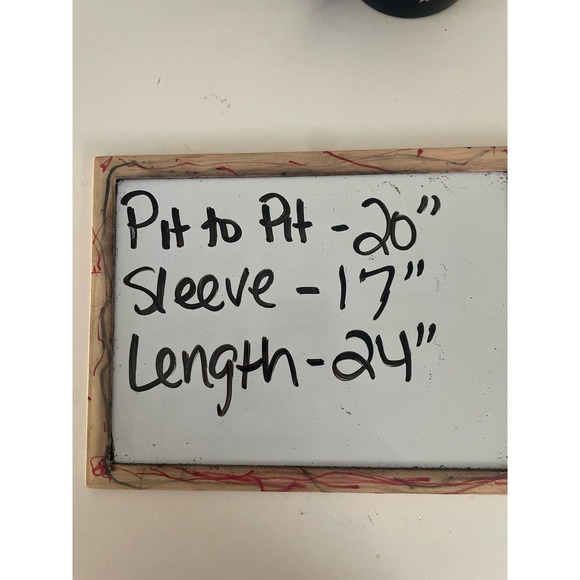 Pit to Pit - 20"
Sleeve - 17"
Length - 24"